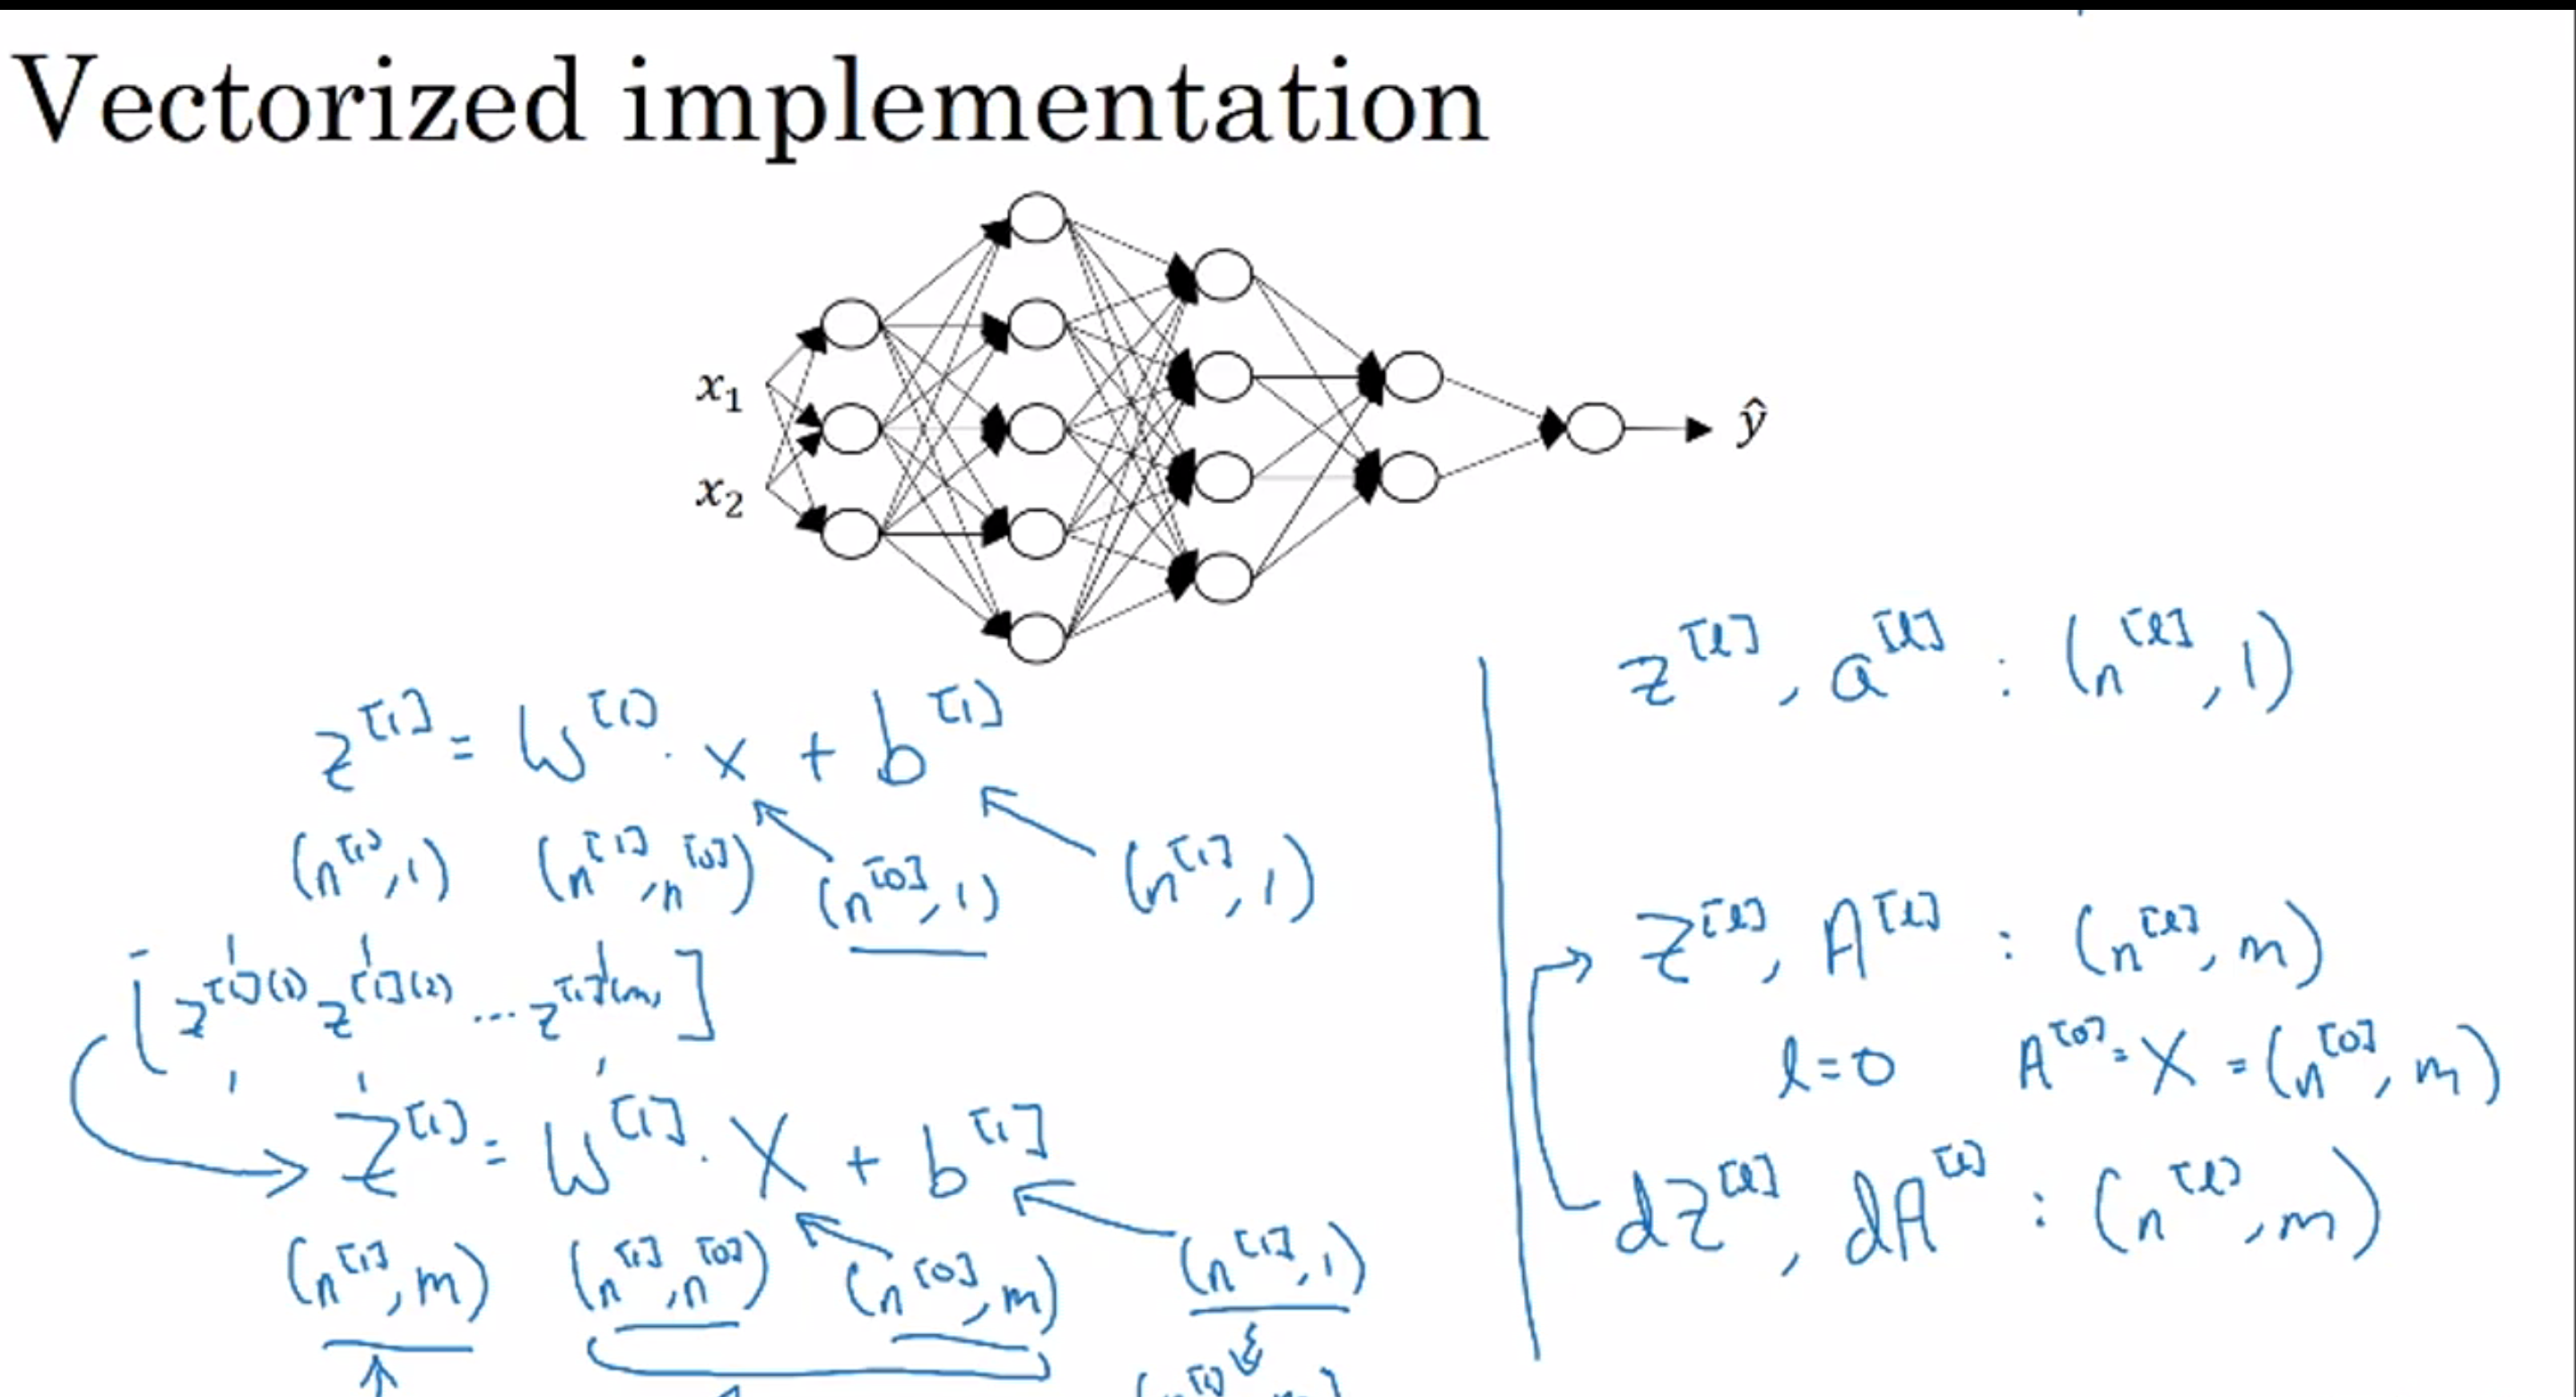 Vectorized implementation
x₁
x₂
ŷ
z^[1] = W^[1] · x + b^[1]
(n^[1], 1) (n^[1], n^[0]) (n^[0], 1) (n^[1], 1)
[z^[1](1) z^[1](2) ... z^[1](m)]
Z^[1] = W^[1] · X + b^[1]
(n^[1], m) (n^[1], n^[0]) (n^[0], m) (n^[1], 1)
z^[l], a^[l] : (n^[l], 1)
Z^[l], A^[l] : (n^[l], m)
l=0 A^[0] = X = (n^[0], m)
dZ^[l], dA^[l] : (n^[l], m)